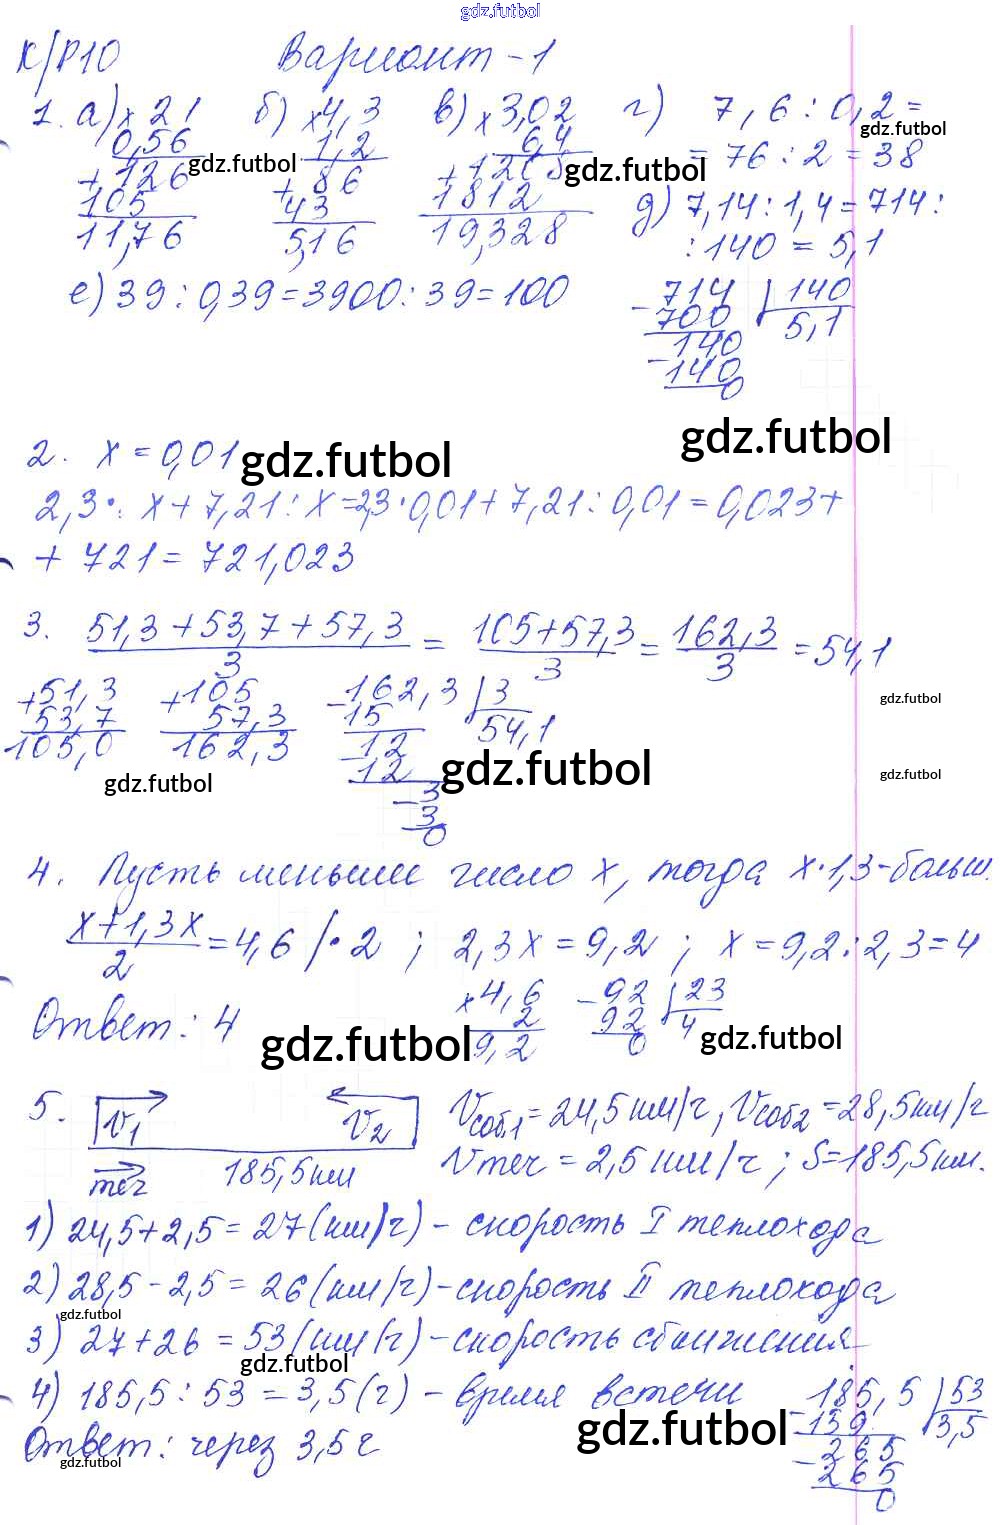 gdz.futbol
К/Р10 Вариант - 1
1. а) × 21 б) × 4,3 в) × 3,02 г) 7,6 : 0,2 =
0,56 1,2 6,4 = 76 : 2 = 38
gdz.futbol
gdz.futbol
gdz.futbol
+ 126 + 86 + 1208 д) 7,14 : 1,4 = 714 :
105 43 1812 : 140 = 5,1
11,76 5,16 19,328
е) 39 : 0,39 = 3900 : 39 = 100 - 714 | 140
700 5,1
140
- 140
0
2. x = 0,01
gdz.futbol
gdz.futbol
2,3 · x + 7,21 : x = 2,3 · 0,01 + 7,21 : 0,01 = 0,023 +
+ 721 = 721,023
3. (51,3 + 53,7 + 57,3)/3 = (105 + 57,3)/3 = 162,3/3 = 54,1
+ 51,3 + 105 - 162,3 | 3
53,7 57,3 15 54,1
105,0 162,3 - 12
12
- 3
3
0
gdz.futbol
gdz.futbol
gdz.futbol
gdz.futbol
4. Пусть меньшее число x, тогда x · 1,3 - больш.
(x + 1,3x)/2 = 4,6 / · 2 ; 2,3x = 9,2 ; x = 9,2 : 2,3 = 4
Ответ: 4 × 4,6 - 92 | 23
2 92 4
9,2 0
gdz.futbol
gdz.futbol
5. V1 V2 Vсоб.1 = 24,5 км/г, Vсоб2 = 28,5 км/г
теч 185,5 км Vтеч = 2,5 км/ч ; S = 185,5 км.
1) 24,5 + 2,5 = 27 (км/г) - скорость I теплохода
2) 28,5 - 2,5 = 26 (км/г) - скорость II теплохода
gdz.futbol
3) 27 + 26 = 53 (км/г) - скорость сближения
gdz.futbol
4) 185,5 : 53 = 3,5 (г) - время встечи - 185,5 | 53
Ответ: через 3,5 г 159 3,5
gdz.futbol
gdz.futbol
- 265
265
0